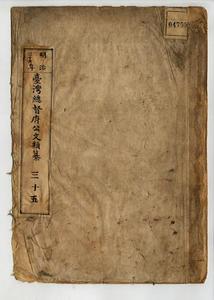 明治
三十年
臺灣總督府公文類纂
三十五